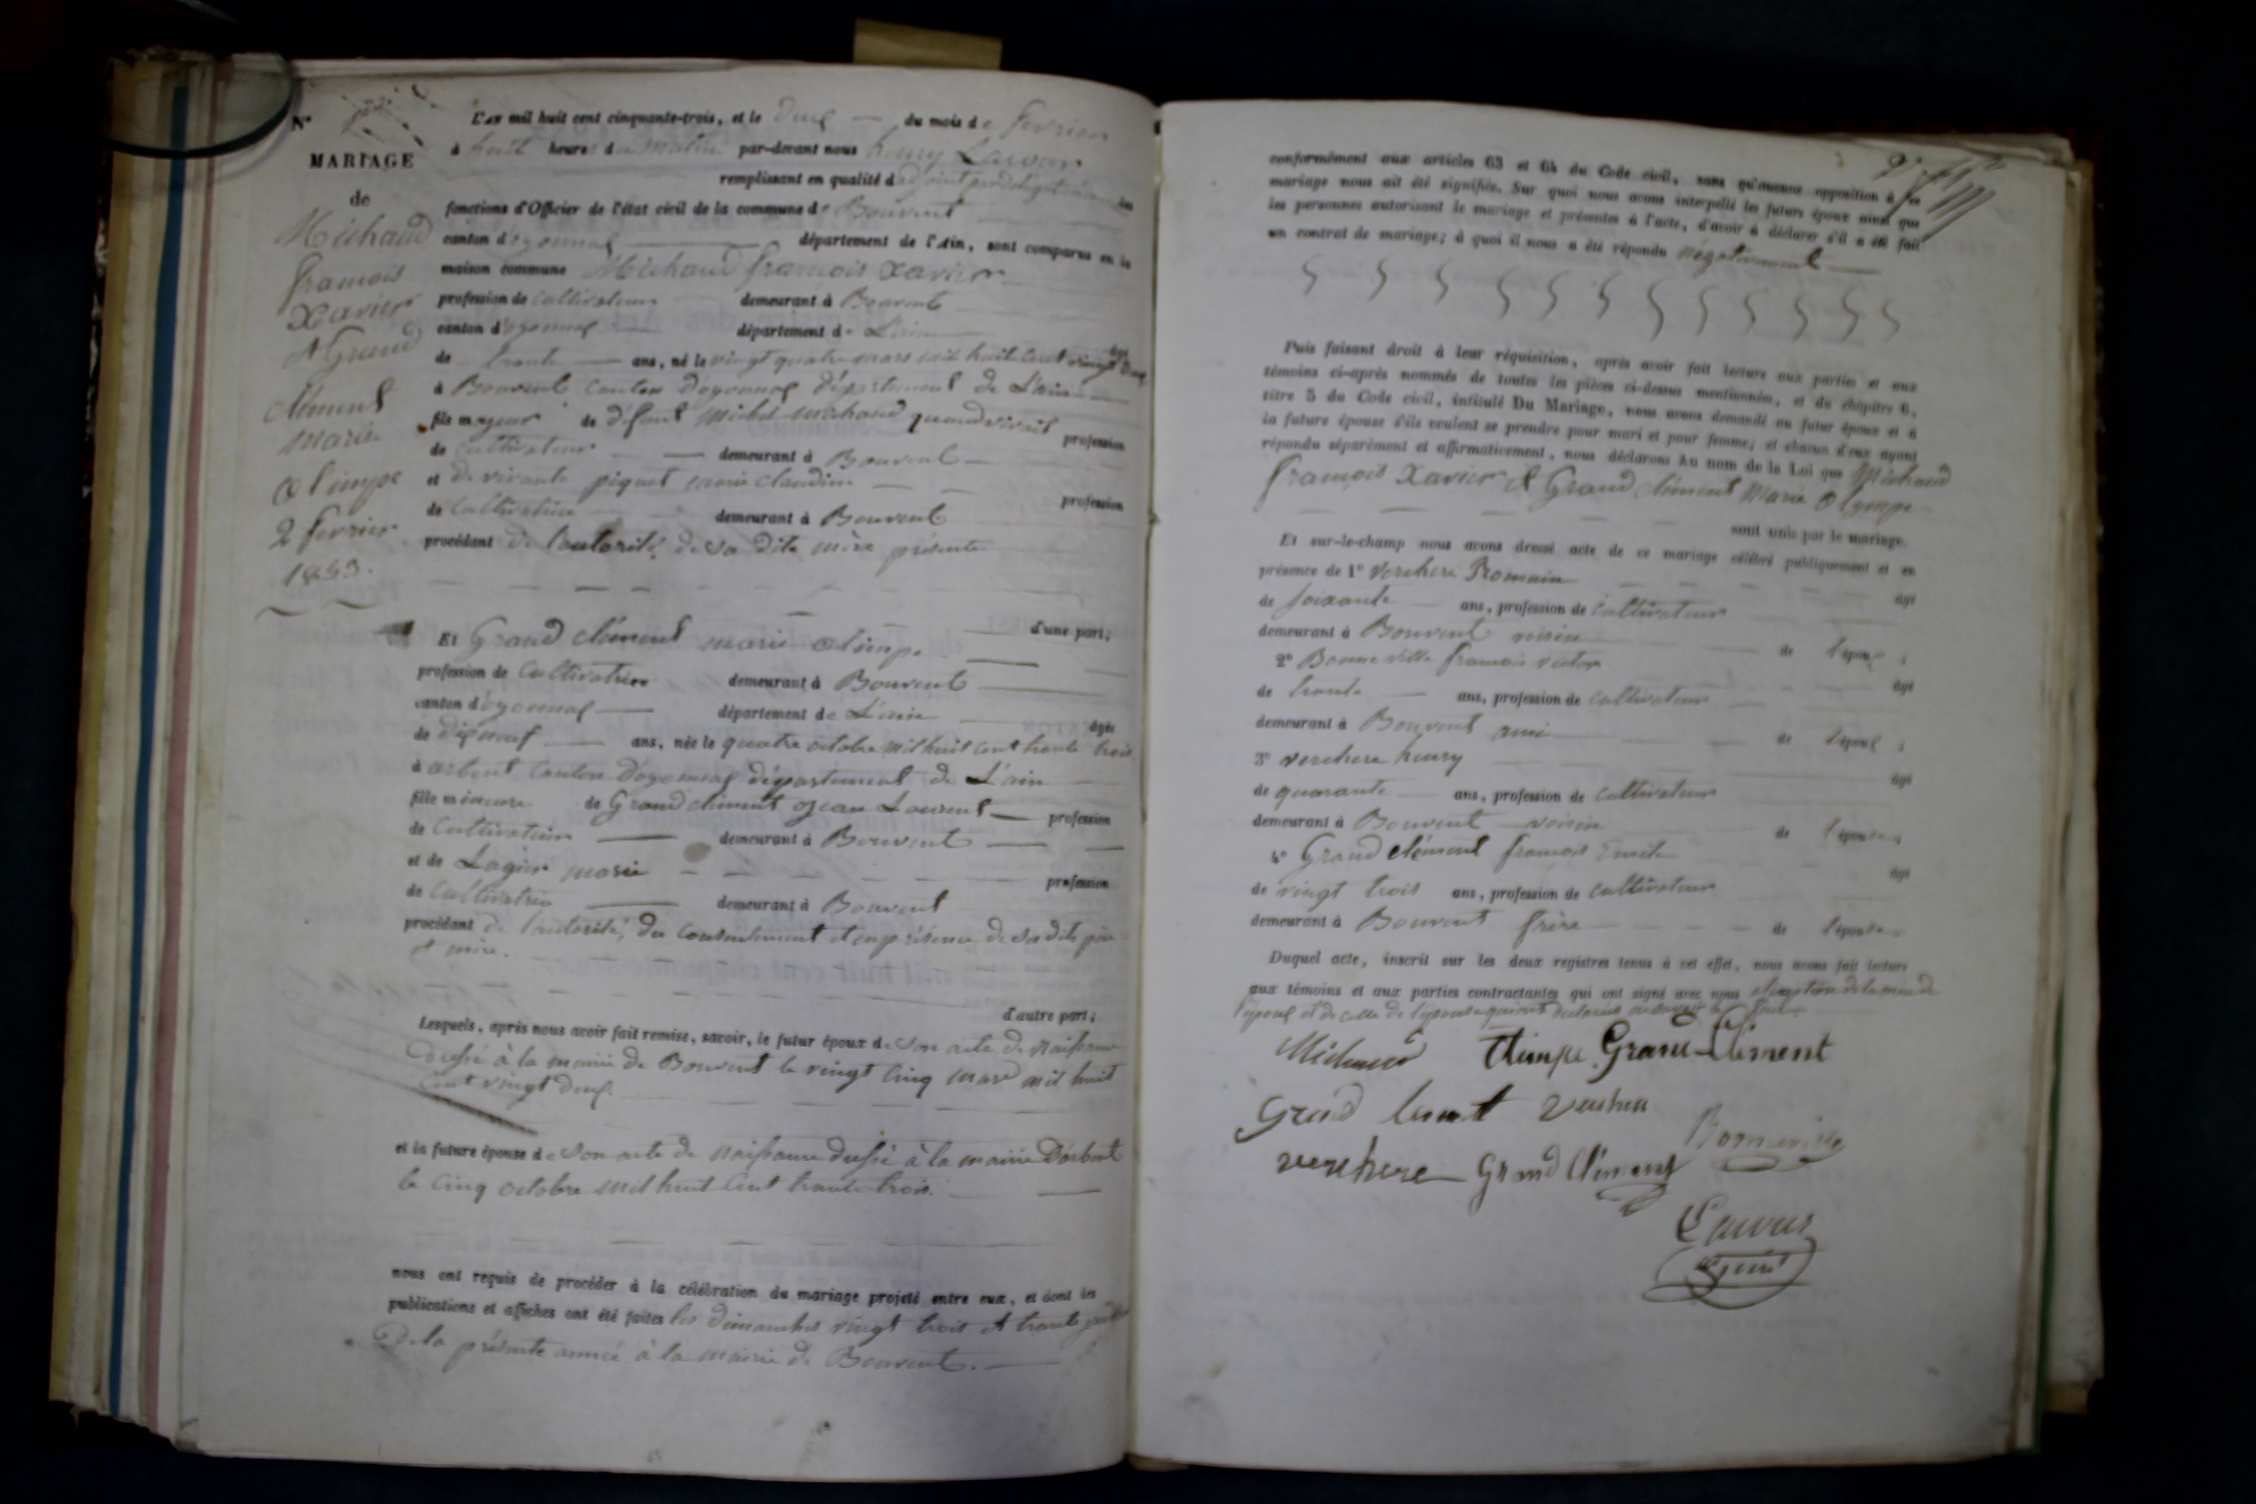 N°
MARIAGE
de
Michaud
françois
Xavier
et Grand
clément
marie
olimpe
2 fevrier
1853.
L'an mil huit cent cinquante-trois, et le deux du mois de fevrier
à huit heures du matin par-devant nous henry
remplissant en qualité d'adjoint les
fonctions d'Officier de l'état civil de la commune de Bouvent
canton d'oyonnax département de l'Ain, sont comparus en la
maison commune Michaud françois Xavier
profession de cultivateur demeurant à Bouvent
canton d'oyonnax département de L'ain âgé
de trente ans, né le vingt quatre mars mil huit cent vingt deux
à Bouvent canton d'oyonnax département de L'ain
fils majeur de défunt michel michaud quand vivait profession
de cultivateur demeurant à Bouvent
et de vivante piquet marie claudine profession
de cultivatrice demeurant à Bouvent
procédant de l'autorité de sa dite mère présente
d'une part;
Et Grand clément marie olimpe
profession de cultivatrice demeurant à Bouvent
canton d'oyonnax département de L'ain âgée
de dixneuf ans, née le quatre octobre mil huit cent trente trois
à arbent canton d'oyonnax département de L'ain
fille mineure de Grand clément jean Laurent profession
de cultivateur demeurant à Bouvent
et de Lagier marie profession
de cultivatrice demeurant à Bouvent
procédant de l'autorité, du consentement et en présence de ses dits père
et mère.
d'autre part;
Lesquels, après nous avoir fait remise, savoir, le futur époux de son acte de naissance
dressé à la mairie de Bouvent le vingt cinq mars mil huit
cent vingt deux
et la future épouse de son acte de naissance dressé à la mairie d'arbent
le cinq octobre mil huit cent trente trois.
nous ont requis de procéder à la célébration du mariage projeté entre eux, et dont les
publications et affiches ont été faites les dimanches vingt trois et trente janvier
De la présente année à la mairie de Bouvent.
conformément aux articles 63 et 64 du Code civil, sans qu'aucune opposition à ce
mariage nous ait été signifiée. Sur quoi nous avons interpellé les futurs époux ainsi que
les personnes autorisant le mariage et présentes à l'acte, d'avoir à déclarer s'il a été fait
un contrat de mariage; à quoi il nous a été répondu négativement
Puis faisant droit à leur réquisition, après avoir fait lecture aux parties et aux
témoins ci-après nommés de toutes les pièces ci-dessus mentionnées, et du chapitre 6,
titre 5 du Code civil, intitulé Du Mariage, nous avons demandé au futur époux et à
la future épouse s'ils veulent se prendre pour mari et pour femme; et chacun d'eux ayant
répondu séparément et affirmativement, nous déclarons Au nom de la Loi que Michaud
françois Xavier et Grand clément Marie olympe
sont unis par le mariage.
Et sur-le-champ nous avons dressé acte de ce mariage célébré publiquement et en
présence de 1° Verchere Romain âgé
de soixante ans, profession de cultivateur
demeurant à Bouvent voisin de l'époux ;
2° Bonneville françois victor âgé
de trente ans, profession de cultivateur
demeurant à Bouvent ami de l'époux ;
3° verchere henry âgé
de quarante ans, profession de cultivateur
demeurant à Bouvent voisin de l'épouse ;
4° Grand clément françois Emile âgé
de vingt trois ans, profession de cultivateur
demeurant à Bouvent frère de l'épouse
Duquel acte, inscrit sur les deux registres tenus à cet effet, nous avons fait lecture
aux témoins et aux parties contractantes qui ont signé avec nous de la mère de
l'époux et de celle de l'épouse qui ont déclarés
Michaud Olimpe Grand-Clément
Grand verchere
Bonneville
verchere Grand Clément
adjoint